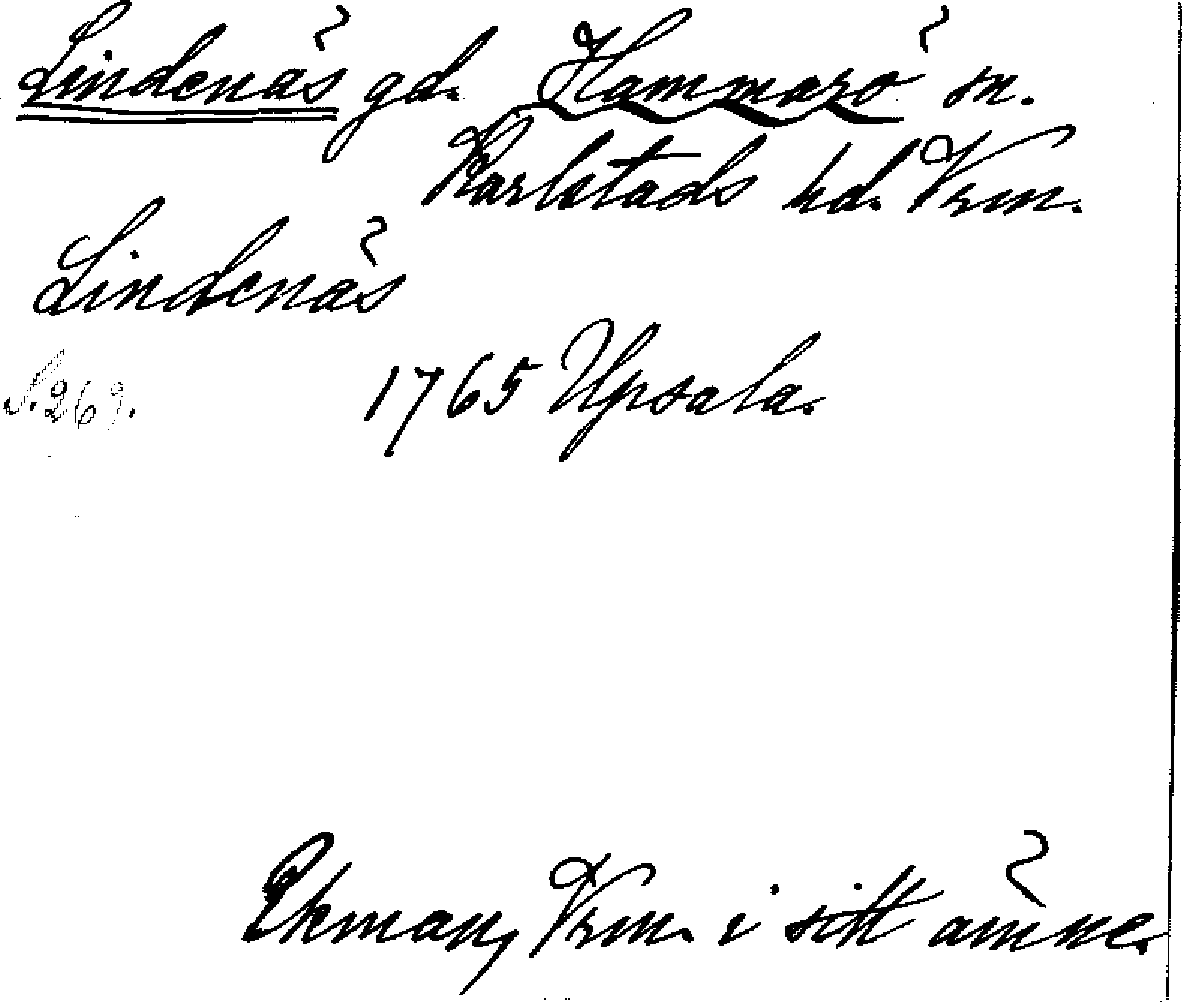 Lindenäs gd. Hammarö sn.
Karlstads hd. Vrm.
Lindenäs
S. 269. 1765 Upsala.
Ekman, Vrm. i sitt ämne.